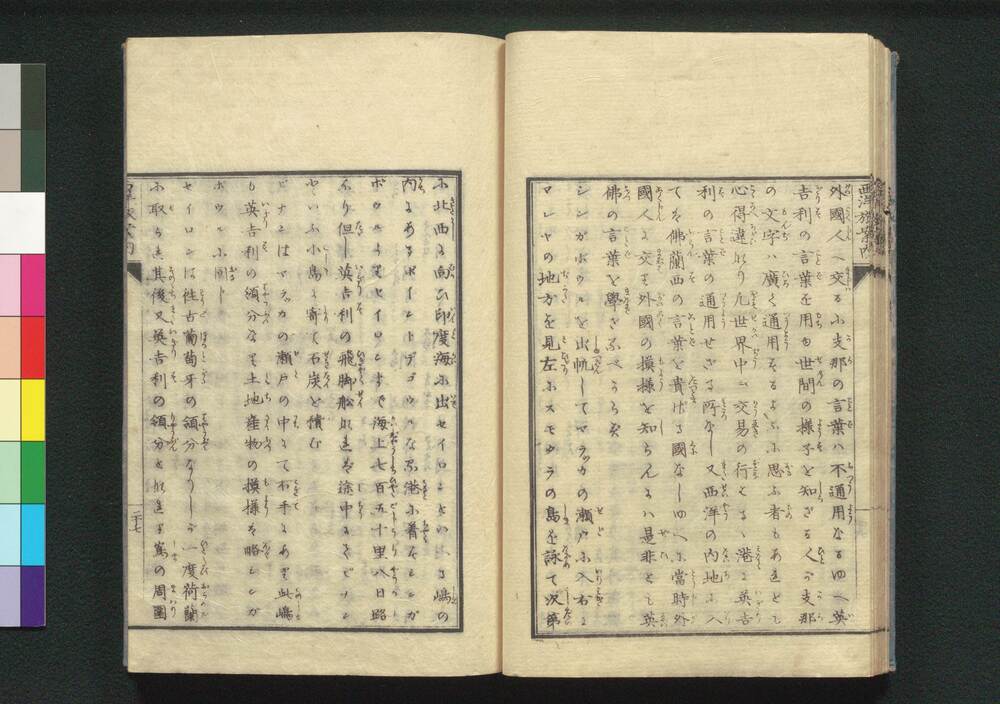 西洋旅案内
外國人へ交るに支那の言葉ハ不通用なるゆへ英
吉利の言葉を用ゆ世間の様子を知ざるくが支那
の文字ハ廣く通用するように思ふ者もあれども
心得違なり凡世界中に交易の行とゞく港に英吉
利の言葉の通用せざる所なし又西洋の内地に入
ても佛蘭西の言葉を貴げざる國なしゆへに當時外
國人と交り外國の模様を知らんにハ是非とも英
佛の言葉を學ざるべからず
シンガポウルを出帆してマラッカの瀬戸に入右に
マレヤの地方を見左にスモタラの島を詠て次第
に此西に向ひ印度海に出セイロンといへる嶋の
内にあるポイントデゴウルなる港に着シンガ
ポウルよりセイロンまで海上七百五十里八日路
なり但し英吉利の飛脚船なれば途中にてピナン
といふ小島に寄て石炭を積む
ピナンはマラッカの瀬戸の中にて右手にあり此嶋
も英吉利の領分なり土地産物の模様を略シンガ
ポウルに同し
セイロンは往古葡萄牙の領分なりしが一度荷蘭
に取られ其後又英吉利の領分となれり嶌の周圍
二十七